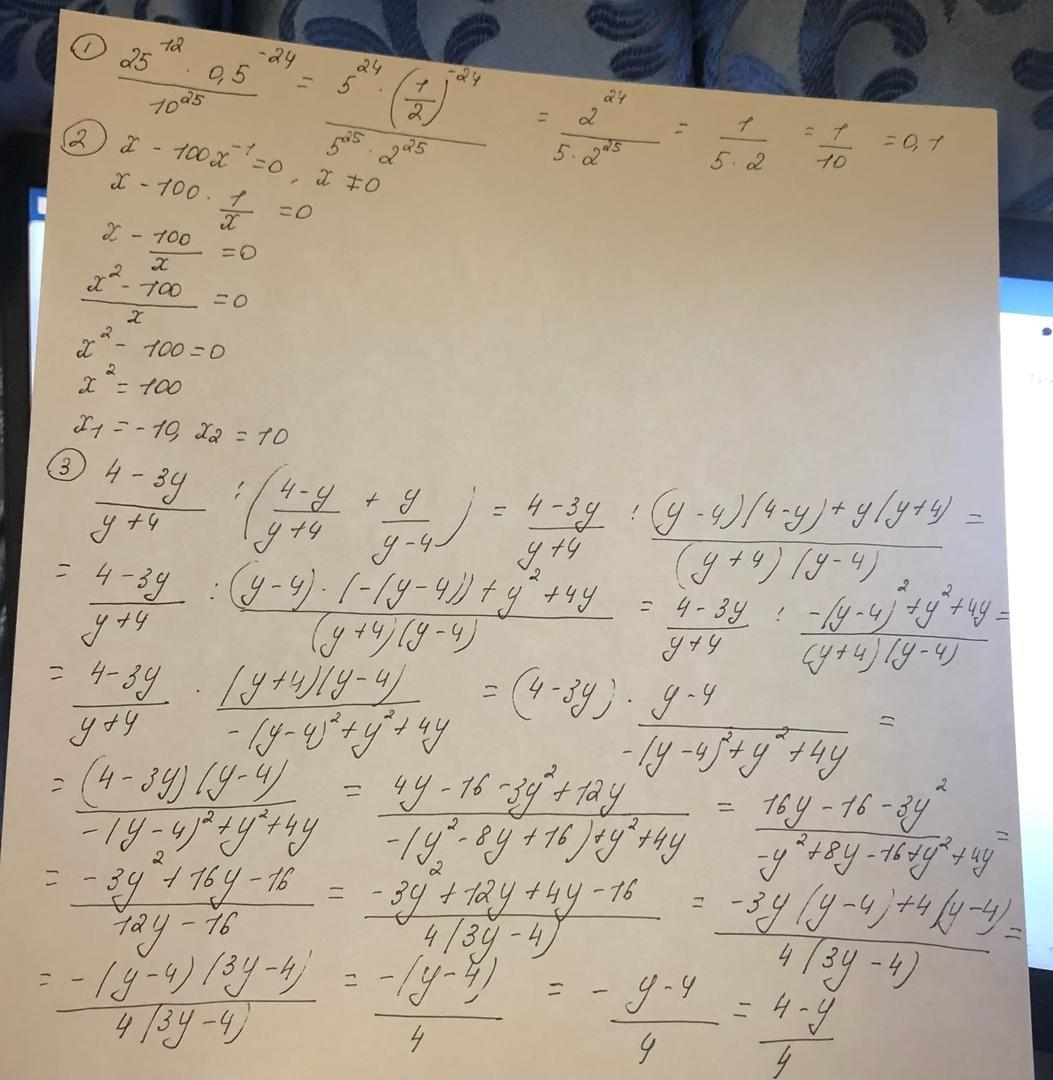 ① 25^12 · 0,5^-24 / 10^25 = 5^24 · (1/2)^-24 / 5^25 · 2^25 = 2^24 / 5 · 2^25 = 1 / 5 · 2 = 1/10 = 0,1
② x - 100x^-1 = 0, x ≠ 0
x - 100 · 1/x = 0
x - 100/x = 0
x^2 - 100 / x = 0
x^2 - 100 = 0
x^2 = 100
x1 = -10, x2 = 10
③ 4 - 3y / y + 4 : (4 - y / y + 4 + y / y - 4) = 4 - 3y / y + 4 : (y - 4)(4 - y) + y(y + 4) / (y + 4)(y - 4) =
= 4 - 3y / y + 4 : (y - 4) · (-(y - 4)) + y^2 + 4y / (y + 4)(y - 4) = 4 - 3y / y + 4 : -(y - 4)^2 + y^2 + 4y / (y + 4)(y - 4) =
= 4 - 3y / y + 4 · (y + 4)(y - 4) / -(y - 4)^2 + y^2 + 4y = (4 - 3y) · y - 4 / -(y - 4)^2 + y^2 + 4y =
= (4 - 3y)(y - 4) / -(y - 4)^2 + y^2 + 4y = 4y - 16 - 3y^2 + 12y / -(y^2 - 8y + 16) + y^2 + 4y = 16y - 16 - 3y^2 / -y^2 + 8y - 16 + y^2 + 4y =
= -3y^2 + 16y - 16 / 12y - 16 = -3y^2 + 12y + 4y - 16 / 4(3y - 4) = -3y(y - 4) + 4(y - 4) / 4(3y - 4) =
= -(y - 4)(3y - 4) / 4(3y - 4) = -(y - 4) / 4 = - y - 4 / 4 = 4 - y / 4